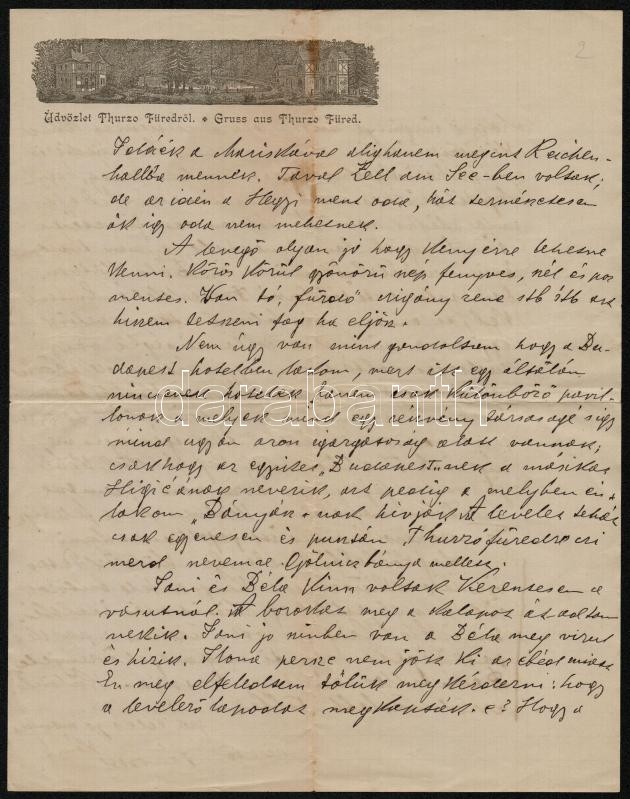 2
Üdvözlet Thurzo Füredről. Gruss aus Thurzo Füred.
a Mariskával alighanem megint Reichen-
hallba mennek. Taval Zell am See-ben voltak,
de az idén a Hegyi ment oda, hát természetesen
ők így oda nem mehetnek.
A levegő olyan jó hogy kenyérre lehetne
kenni. Körös körül gyönörü nép fenyves, szél és por
mentes. Van tó, fürdő cigány zene stb stb azt
hiszem tetszeni fog ha eljön.
Nem úgy van mint gondoltam hogy a Bu-
dapest hotelben lakom, mert itt egy általán
nincsenek hotelek hanem csak különböző pavil-
lonok a melyek mind egy részvény társaságé s így
mind ugyan azon igazgatóság alatt vannak,
csakhogy az egyiket „Budapest"-nek a másikat
nevezik, azt pedig a melyben én
lakom „Bányák"-nak hívják. A levelet tehát
csak egyenesen és pusztán „Thurzófüredre" czi
merzd nevemre Gölniczbánya mellett.
és Béla kinn voltak a
vasutnál. A borokat meg a kalapot át adtam
nekik. jó színben van a Béla meg virul
és hízik. Ilona persze nem jött ki az ebéd miatt
En meg elfeledtem tőlük megkérdezni: hogy
a levelező lapodat megkapták-e? Hogy a
darabanth